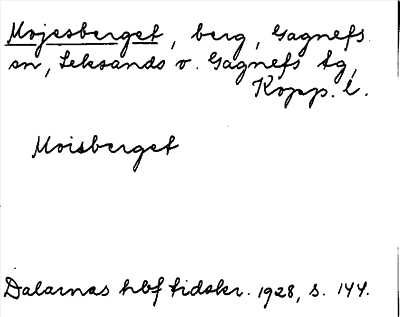 Mojesberget, berg, Gagnefs
sn, Leksands o. Gagnefs tg,
Kopp. l.
Moisberget
Dalarnas hbf tidskr. 1928, s. 144.